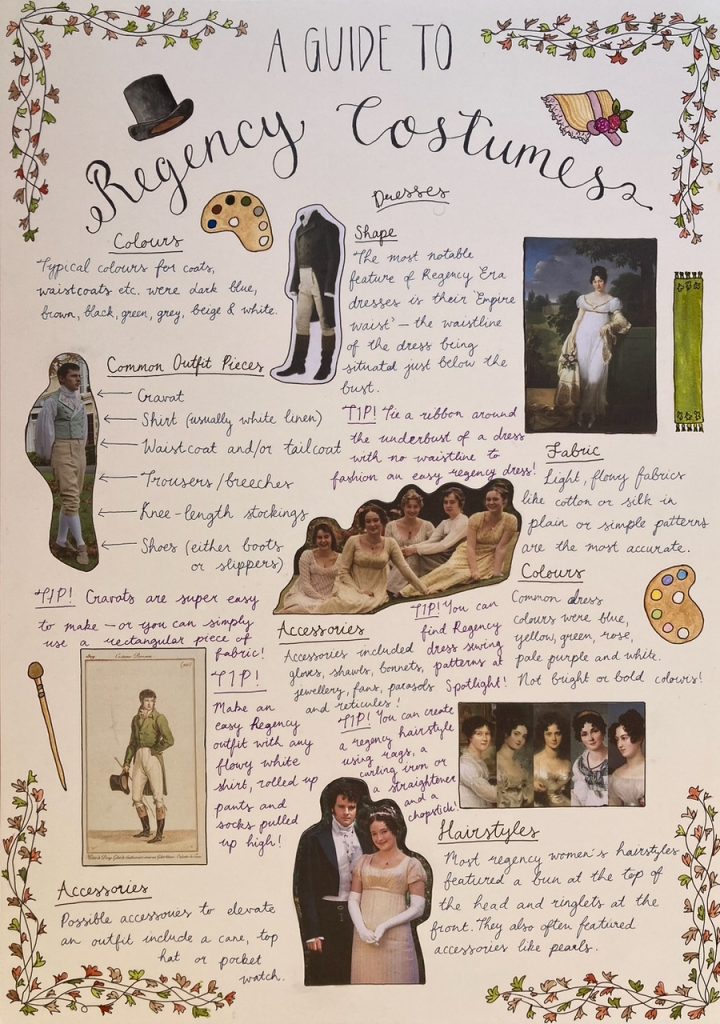 A GUIDE TO
Regency Costumes
Colours
Typical colours for coats,
waistcoats etc. were dark blue,
brown, black, green, grey, beige & white.
Common Outfit Pieces
Cravat
Shirt (usually white linen)
Waistcoat and/or tailcoat
Trousers/breeches
Knee-length stockings
Shoes (either boots
or slippers)
TIP! Cravats are super easy
to make - or you can simply
use a rectangular piece of
fabric!
TIP!
Make an
easy Regency
outfit with any
flowy white
shirt, rolled up
pants and
socks pulled
up high!
Accessories
Possible accessories to elevate
an outfit include a cane, top
hat or pocket
watch.
Dresses
Shape
The most notable
feature of Regency Era
dresses is their 'Empire
waist' - the waistline
of the dress being
situated just below the
bust.
TIP! Tie a ribbon around
the underbust of a dress
with no waistline to
fashion an easy regency dress!
Fabric
Light, flowy fabrics
like cotton or silk in
plain or simple patterns
are the most accurate.
Colours
Common dress
colours were blue,
yellow, green, rose,
pale purple and white.
Not bright or bold colours!
Accessories
Accessories included
gloves, shawls, bonnets,
jewellery, fans, parasols
and reticules!
TIP! You can
find Regency
dress sewing
patterns at
Spotlight!
TIP! You can create
a regency hairstyle
using rags, a
curling iron or
a straightener
and a
chopstick!
Hairstyles
Most regency women's hairstyles
featured a bun at the top of
the head and ringlets at the
front. They also often featured
accessories like pearls.
Costume Parisien